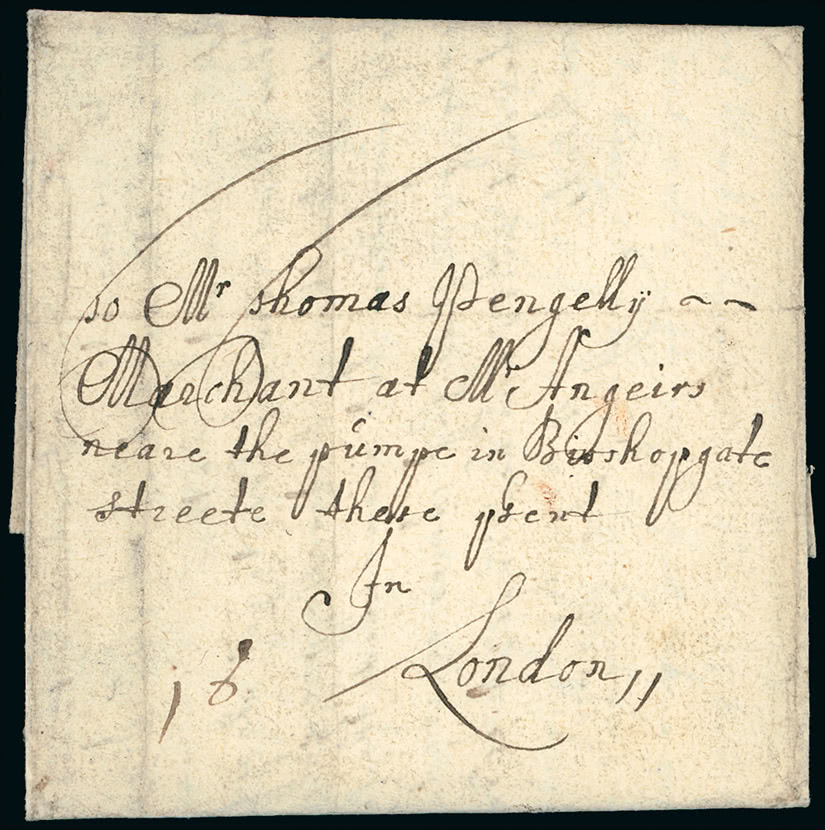 To Mr Thomas Pengelly ~ ~
Marchant at Mr Angeirs
neare the pumpe in Bisshopgate
streete these psent
In
London,,
18